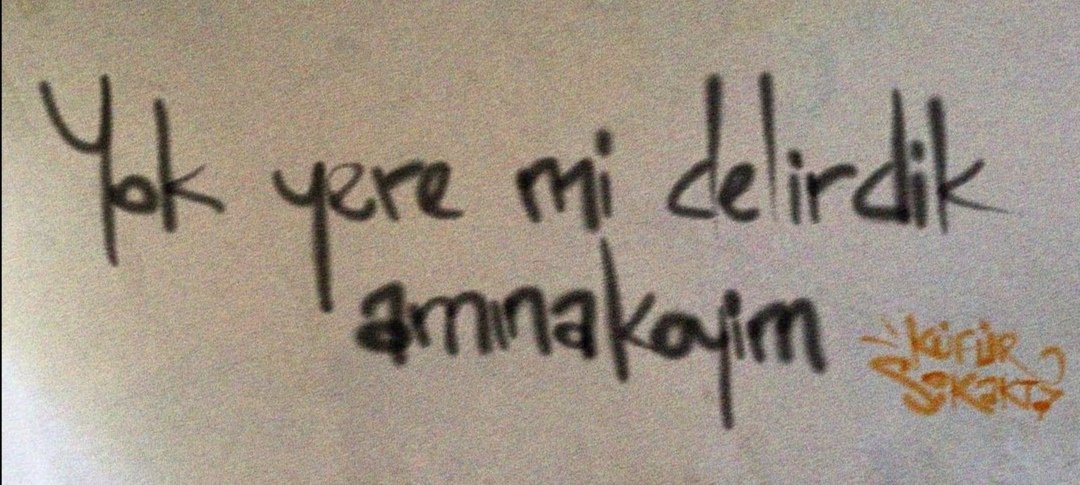 Yok yere mi delirdik
amınakoyim
KÜFÜR
SOKAKTA